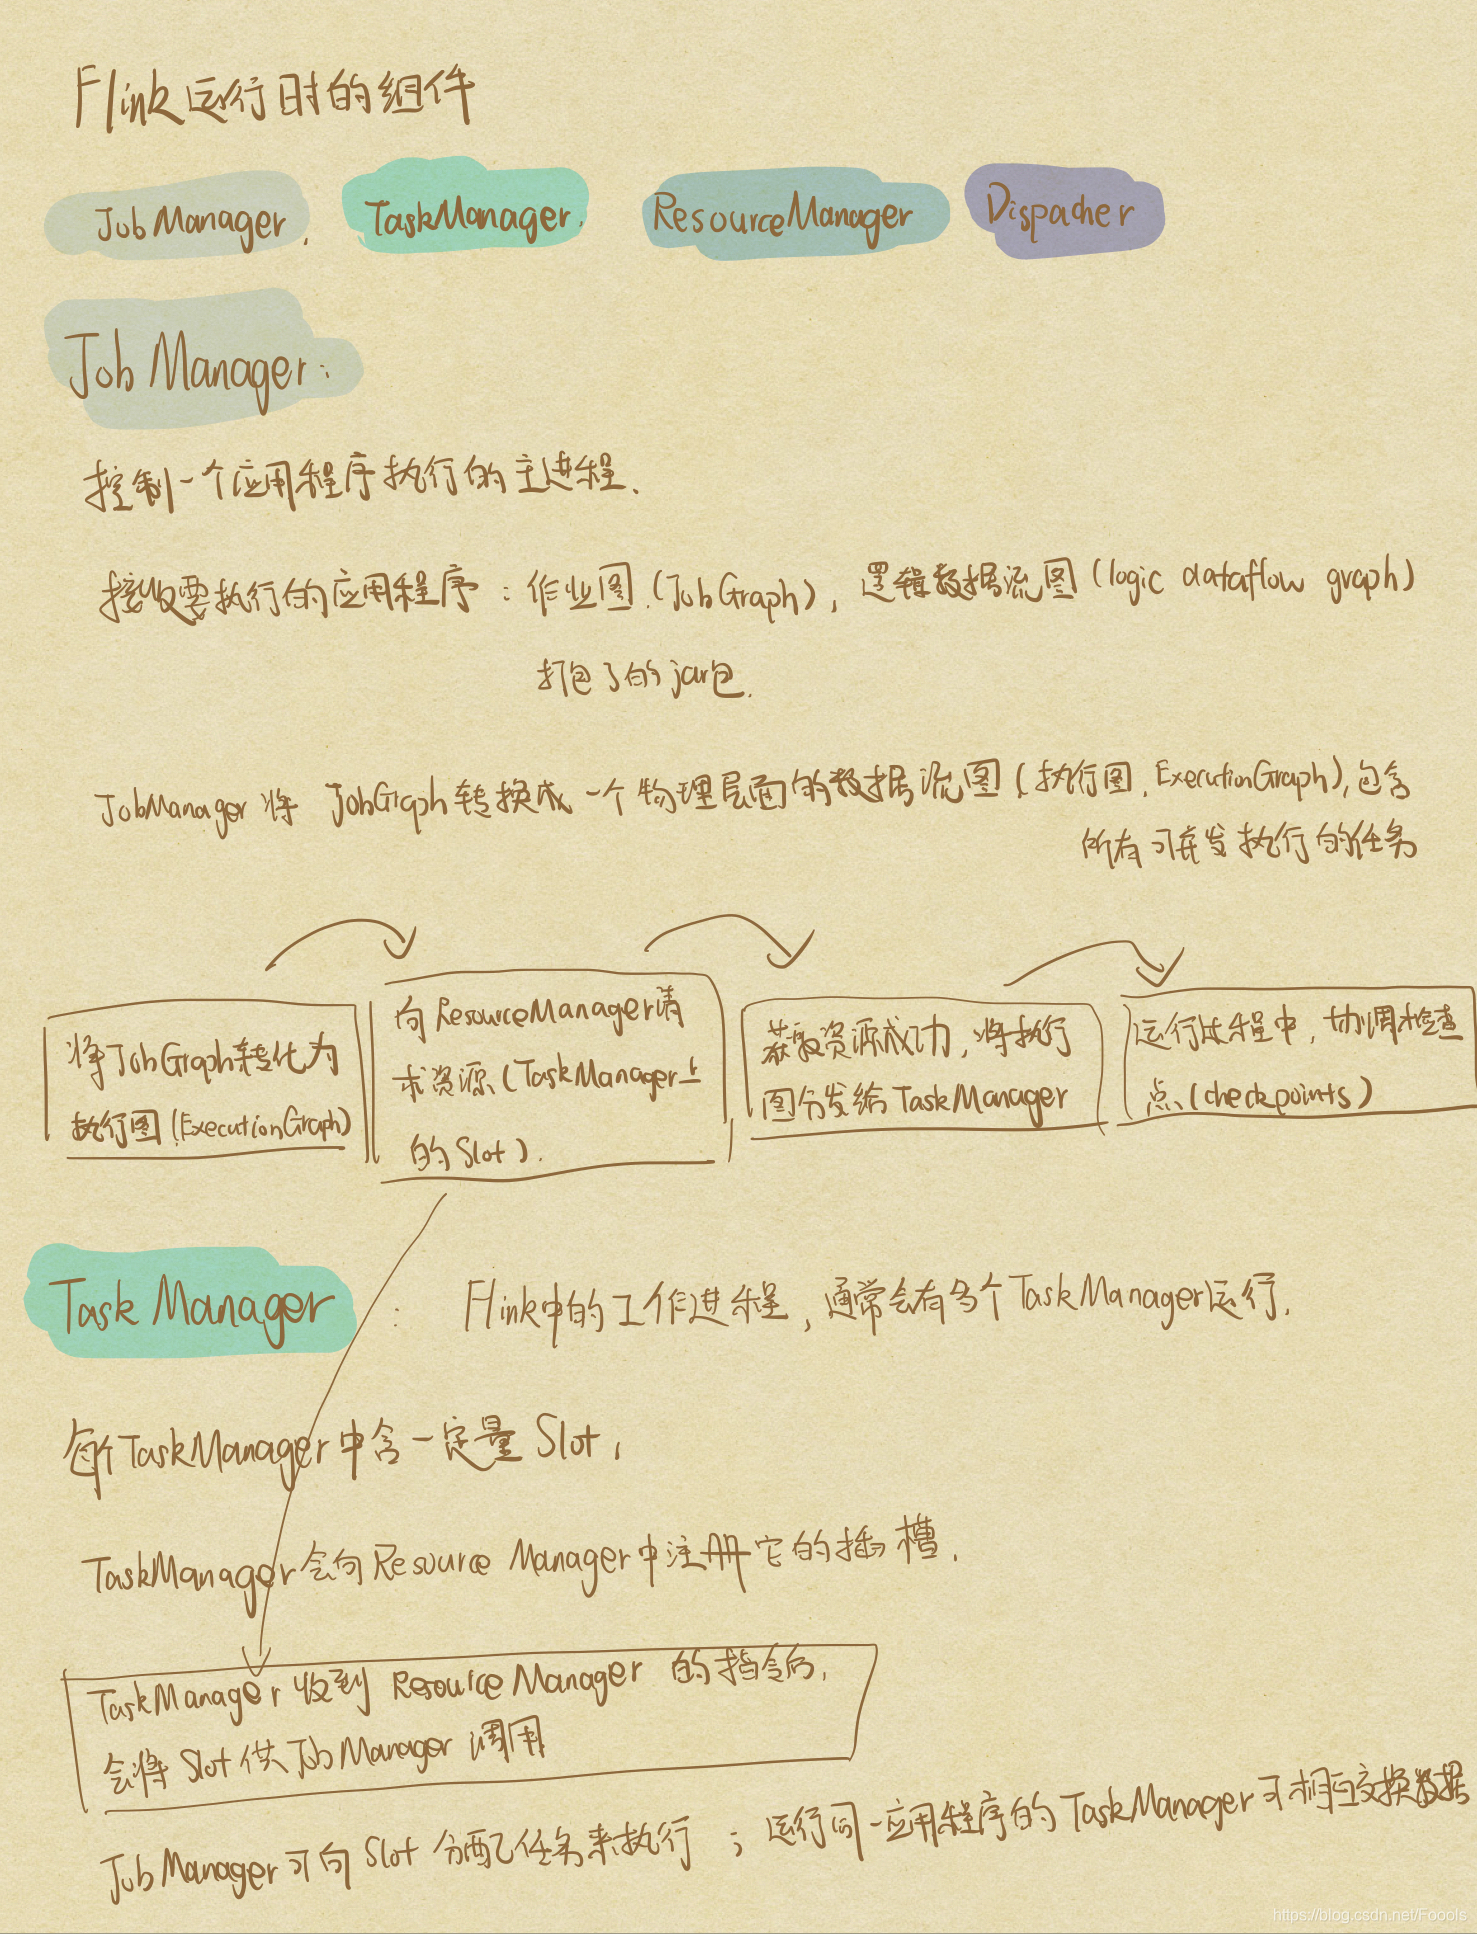 Flink运行时的组件
JobManager, TaskManager, ResourceManager Dispacher
JobManager:
控制一个应用程序执行的主进程.
接收要执行的应用程序:作业图.(JobGraph),逻辑数据流图(logic dataflow graph)
打包了的jar包.
JobManager将 JobGraph转换成一个物理层面的数据流图(执行图,ExecutionGraph),包含
所有可并发执行的任务
将JobGraph转化为
执行图(ExecutionGraph)
向ResourceManager请
求资源(TaskManager上
的Slot).
获取资源成功,将执行
图分发给TaskManager
运行过程中,协调检查
点(checkpoints)
TaskManager : Flink中的工作进程,通常会有多个TaskManager运行.
每个TaskManager中含一定量Slot,
TaskManager会向Resource Manager中注册它的插槽.
TaskManager收到 ResourceManager的指令后,
会将Slot供JobManager调用
JobManager可向Slot分配任务来执行;运行同一应用程序的TaskManager可相互交换数据
https://blog.csdn.net/Foools